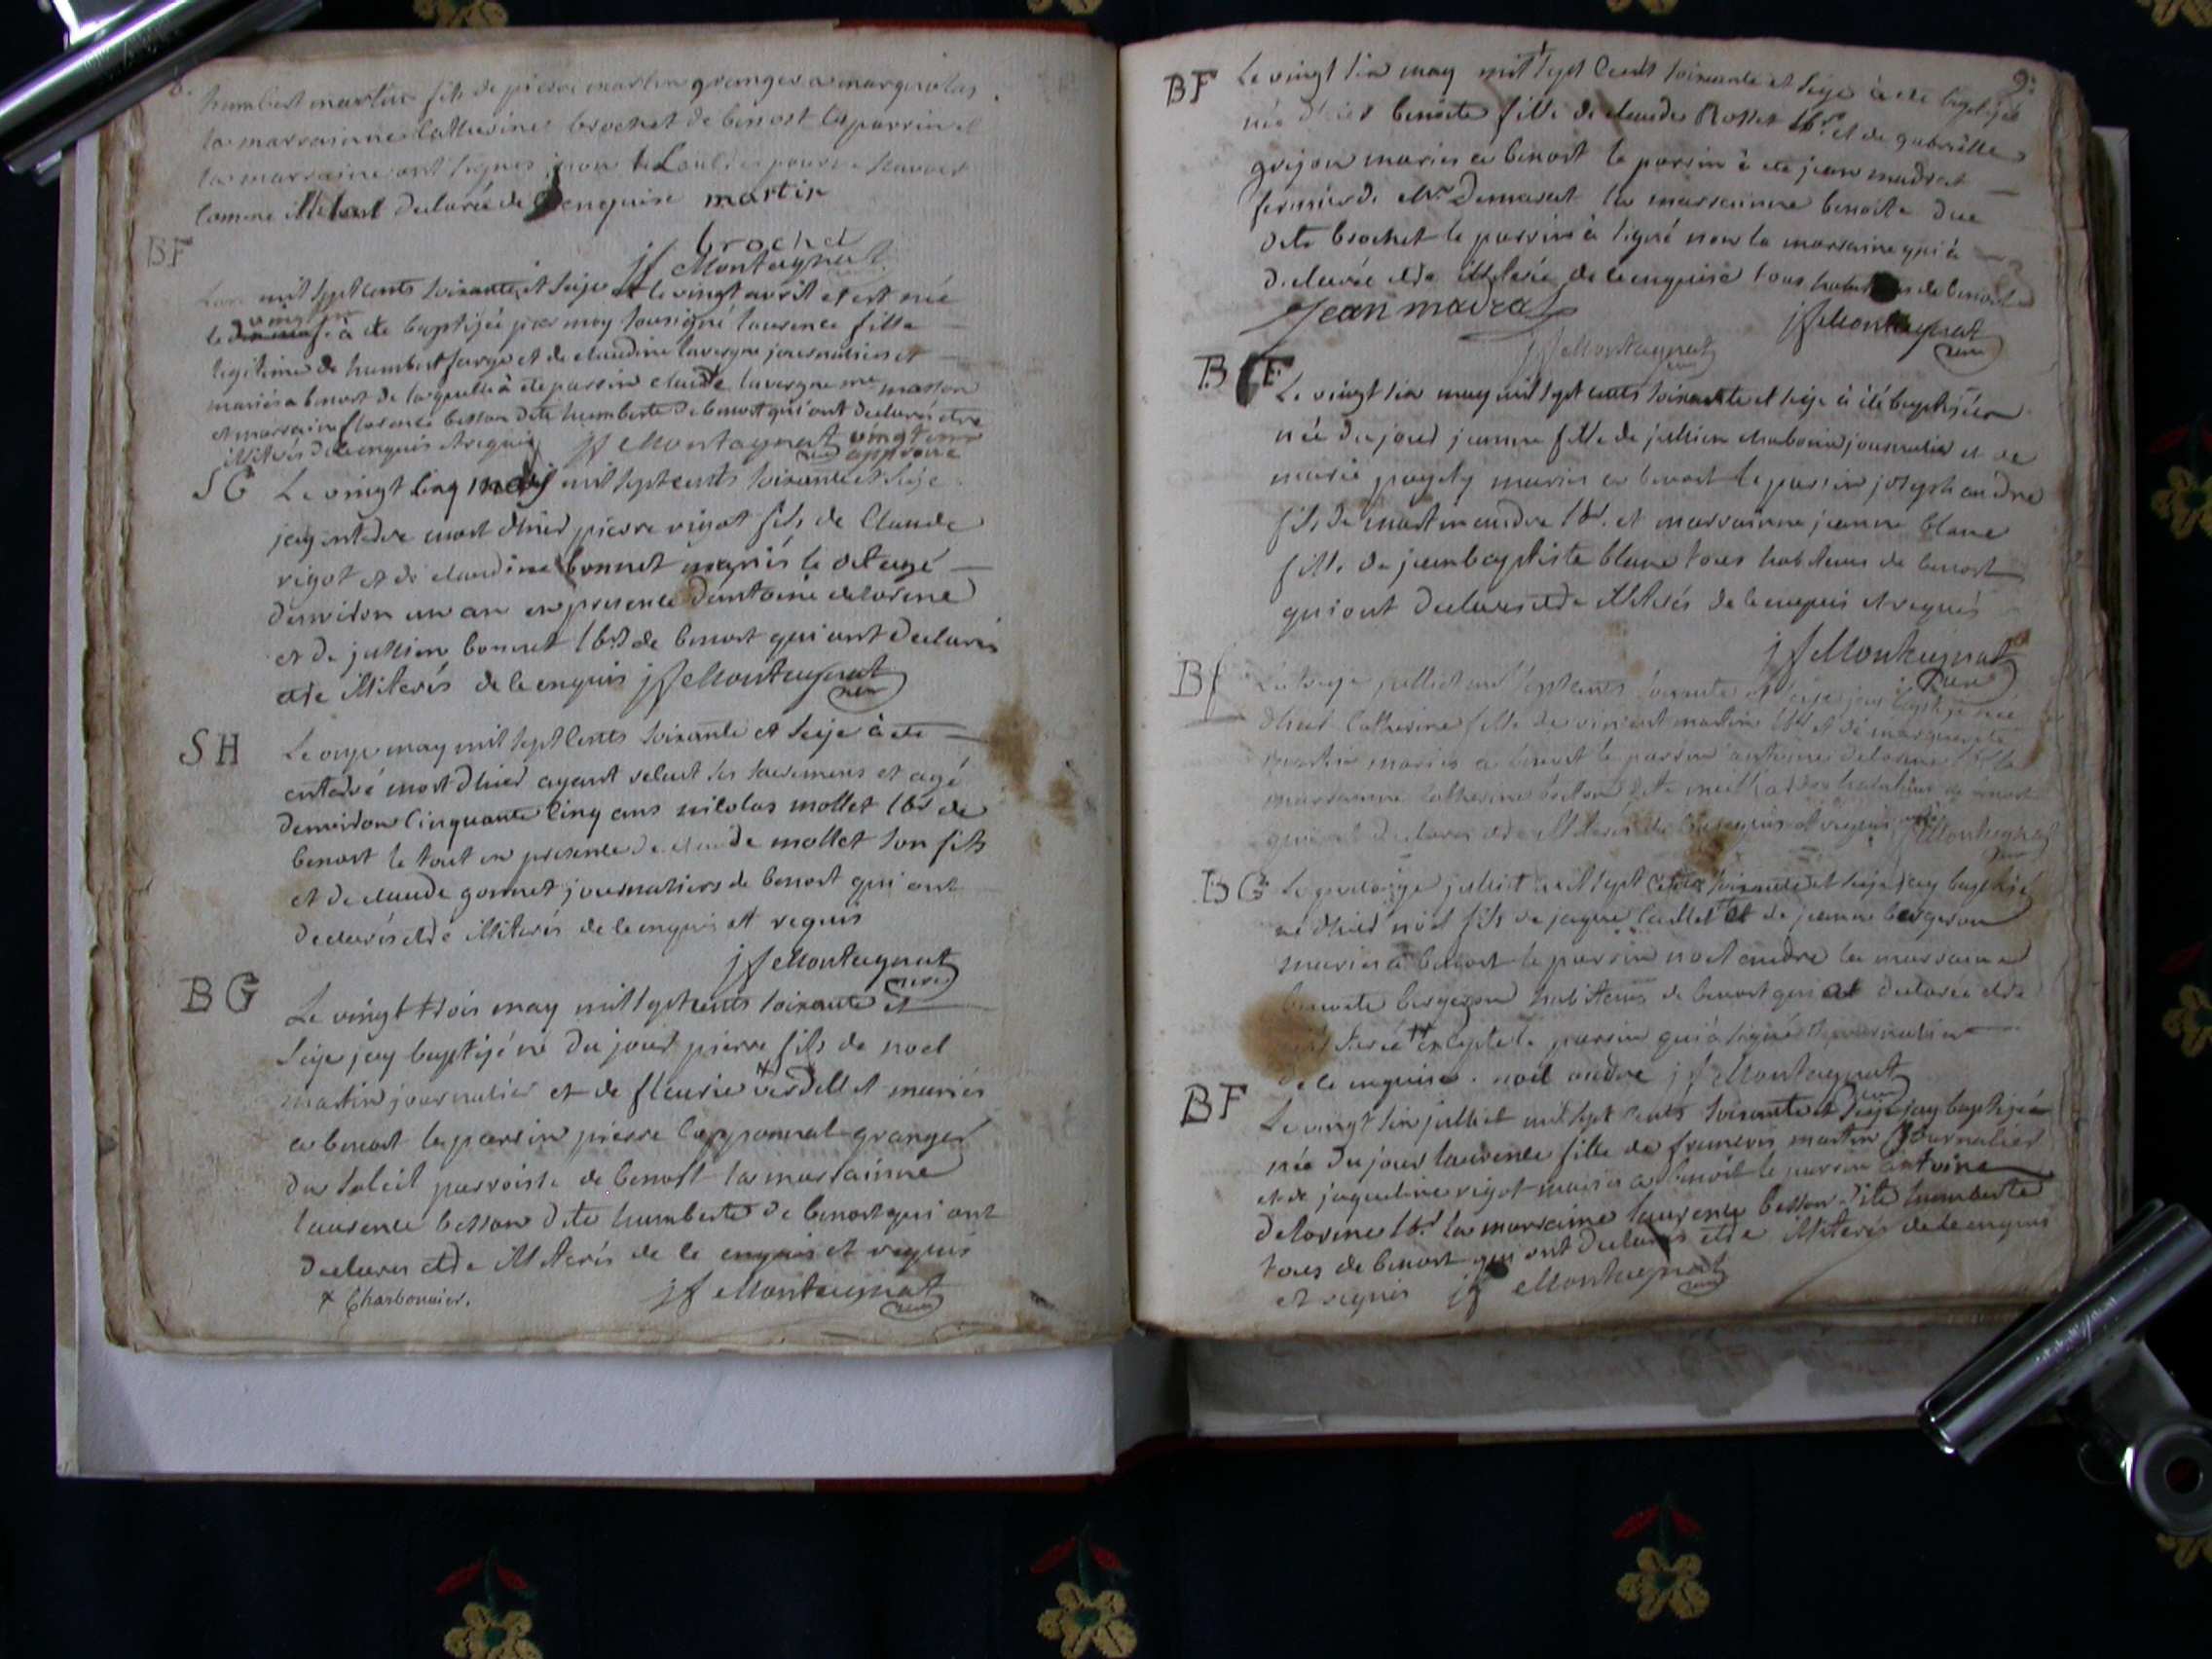 8.
humbert martin fils de pierre martin granger a marquolas
la marrainne Catherine brochet de benost le parrin et
la marraine ont signés non le
comme illiteré declarée de enquise martin
brochet
jf Montagnat
BF
Lan mil sept cents soixante et seize et le vingt avril et est née
le vingt à ete baptizée par moy sousigné laurence fille
legitime de humbert farge et de claudine lavergne journaliers et
mariés a benost de laquelle à ete parrin claude lavergne me masson
et marraine florence besson dite humberte de benost qui ont declarés etre
illiterés de ce enquis et requis jf Montagnat vingt un
curé approuvé
SG Le vingt cinq may mil sept cents soixante et seize
jay enterré mort dhier pierre vigot fils de Claude
vigot et de claudine bonnet mariés le dit agé
denviron un an en presence dantoine delorine
et de jullien bonnet lbr de benost qui ont declarés
etre illiterés de ce enquis jf Montagnat
curé
SH Le onze may mil sept cents soixante et seize à ete
enterré mort dhier ayant reçut les sacremens et agé
denviron Cinquante cinq ans nicolas mollet lbr de
benost le tout en presence de claude mollet son fils
et de claude gonnet journaliers de benost qui ont
declarés etre illiterés de ce enquis et requis
jf Montagnat
curé
BG Le vingt trois may mil sept cents soixante et
seize jay baptizé né du jour pierre fils de noel
martin journalier et de fleurie + verdellet mariés
a benost le parrin pierre capponnat granger
du soleil parroisse de benost la marrainne
laurence besson dite humberte de benost qui ont
declarés etre illiterés de ce enquis et requis
+ Charbonnier. jf Montagnat
curé
9.
BF Le vingt six may mil sept Cents soixante et seize à ete baptizée
née dhier benoite fille de claude Rosset lbr et de gabrielle
grejon mariés a benost le parrin à ete jean madrat
fermier de Mr Demasat la marrainne benoite due
dite brochet le parrin à signé non la marraine qui à
declarée etre illiterée de ce enquise tous habitans de benost
Jean madrat
jf Montagnat
curé
jf Montagnat
curé
BF Le vingt six may mil sept cents soixante et seize à été baptizée
née du jour jeanne fille de jullien chabouin journalier et de
marie pagety mariés a benost le parrin joseph andre
fils de martin andre lbr. et marrainne jeanne blanc
fille de jeanbaptiste blanc tous habitans de benost
qui ont declarés etre illiterés de ce enquis et requis
jf Montagnat
curé
Bf Le treize julliet mil sept cents soixante et seize jay baptizé née
dhier Catherine fille de vincent martin lbr et de marguerite
martin mariés a benost le parrin antoine delorine la
marrainne Catherine besson dite habitans de benost
qui ont declarés etre illiterés de ce enquis et requis jf Montagnat
curé
BG Le quatorze julliet mil sept cents soixante et seize jay baptizé
né dhier noel fils de jaque Caillet et de jeanne bergeron
mariés a benost le parrin noel andre la marrainne
benoite bergeron habitans de benost qui at declarée etre
illiterée excepté le parrin qui à signé journalier
de ce enquise. noel andre jf Montagnat
curé
BF Le vingt six julliet mil sept cents soixante et seize jay baptizée
née du jour laurence fille de francois martin journalier
et de jaqueline vigot mariés a benost le parrin antoine
delorine lbr la marraine laurence besson dite humberte
tous de benost qui ont declarés etre illiterés de ce enquis
et requis jf Montagnat
curé